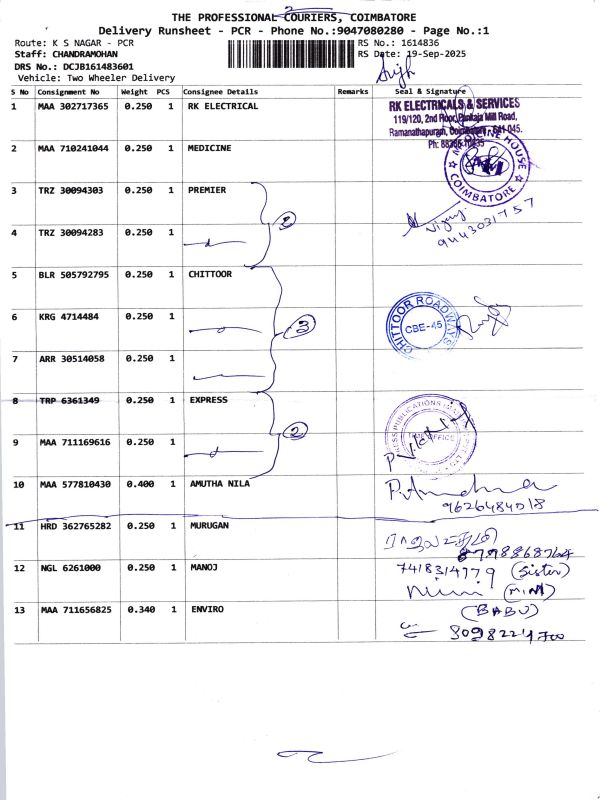 THE PROFESSIONAL COURIERS, COIMBATORE
Delivery Runsheet - PCR - Phone No.:9047080280 - Page No.:1
Route: K S NAGAR - PCR
RS No.: 1614836
Staff: CHANDRAMOHAN
RS Date: 19-Sep-2025
DRS No.: DCJB161483601
Vehicle: Two Wheeler Delivery
S No Consignment No Weight PCS Consignee Details Remarks Seal & Signature
1 MAA 302717365 0.250 1 RK ELECTRICAL
RK ELECTRICALS & SERVICES
119/120, 2nd Floor, Pankaja Mill Road,
Ramanathapuram, Coimbatore - 641 045.
2 MAA 710241044 0.250 1 MEDICINE
MEDICINE HOUSE
COIMBATORE
3 TRZ 30094303 0.250 1 PREMIER
Vijay
9443031757
4 TRZ 30094283 0.250 1
5 BLR 505792795 0.250 1 CHITTOOR
CHITTOOR ROADWAYS
CBE-45
6 KRG 4714484 0.250 1
3
7 ARR 30514058 0.250 1
8 TRP 6361349 0.250 1 EXPRESS
2
9 MAA 711169616 0.250 1
10 MAA 577810430 0.400 1 AMUTHA NILA
9626484018
11 HRD 362765282 0.250 1 MURUGAN
12 NGL 6261000 0.250 1 MANOJ
7418314779 (Sister)
(MINI)
13 MAA 711656825 0.340 1 ENVIRO
(BABU)